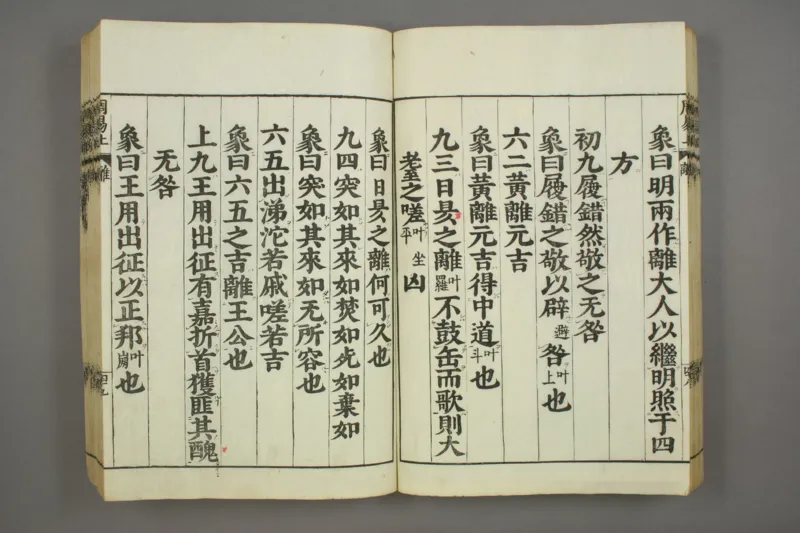 象曰明兩作離大人以繼明照于四
方
初九履錯然敬之无咎
象曰履錯之敬以辟避咎叶上也
六二黃離元吉
象曰黃離元吉得中道叶斗也
九三日昃之離叶羅不鼓缶而歌則大
耋之嗟叶平坐凶
象曰日昃之離何可久也
九四突如其來如焚如死如棄如
象曰突如其來如无所容也
六五出涕沱若戚嗟若吉
象曰六五之吉離王公也
上九王用出征有嘉折首獲匪其醜
无咎
象曰王用出征以正邦叶也
周易上
離